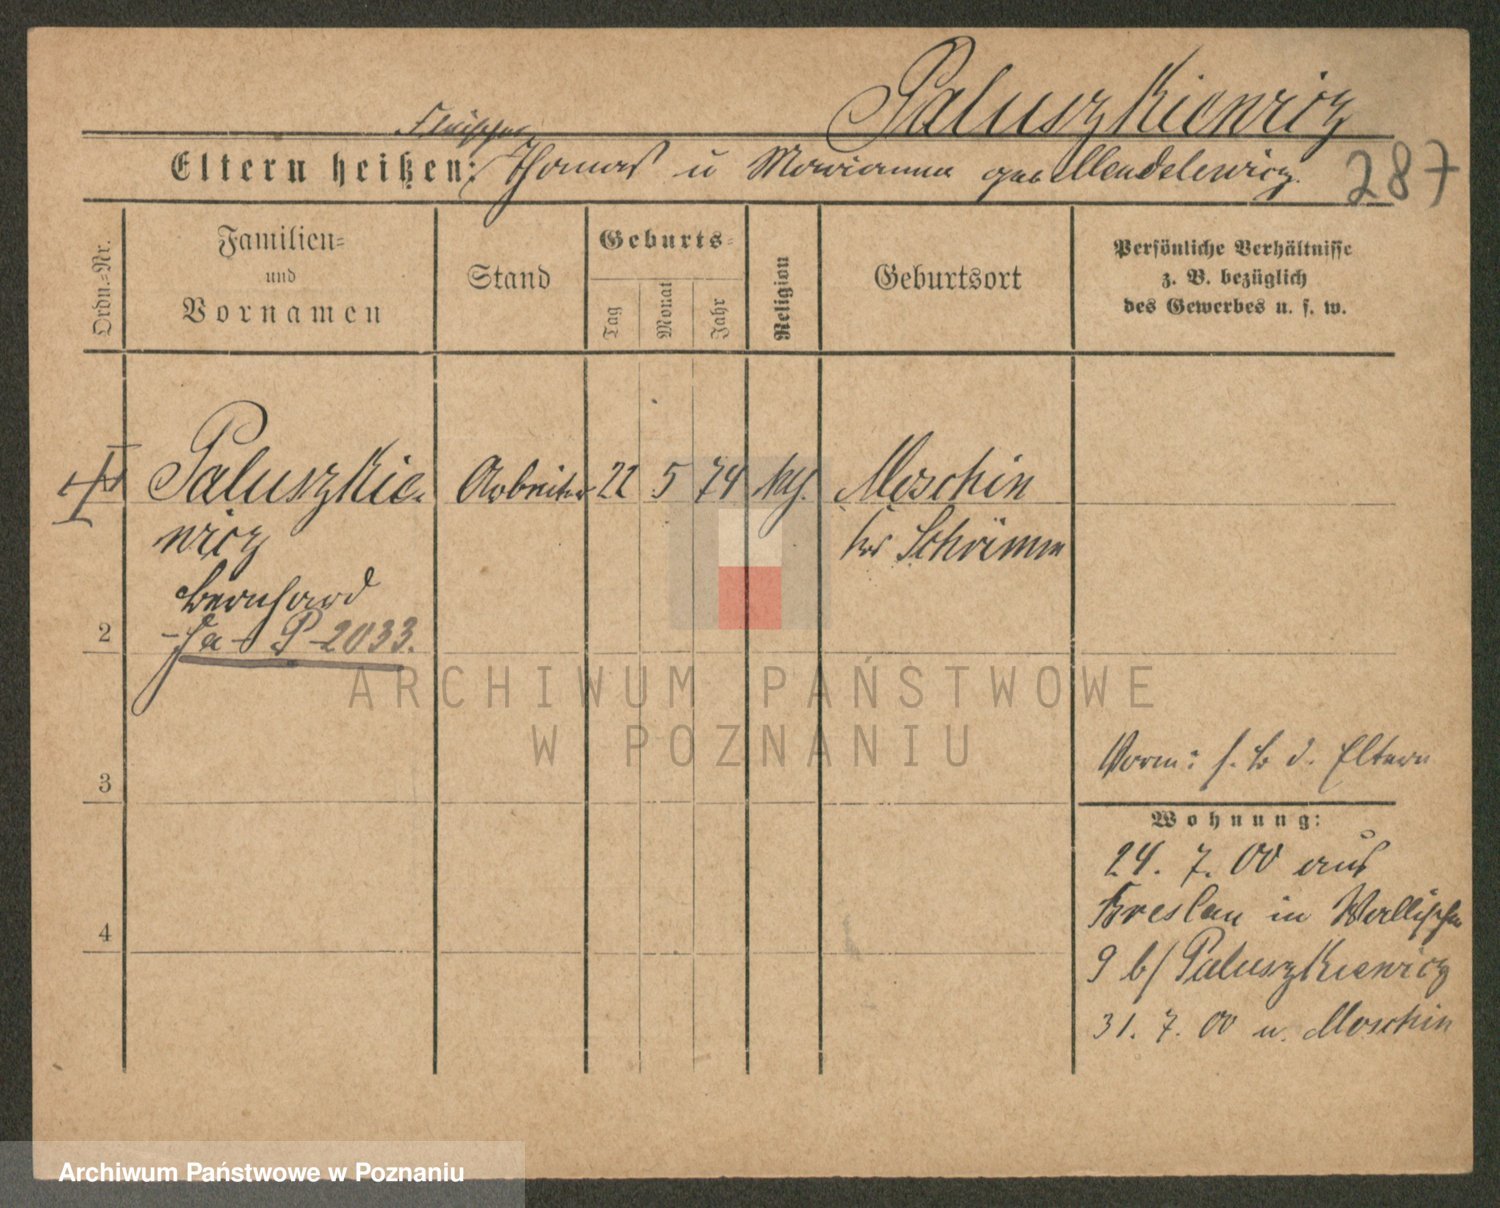 Paluszkiewicz
Fleischer
Eltern heißen: Thomas u Marianna geb Mendelewicz.
287
Ordn.=Nr.
Familien=
und
Vornamen
Stand
Geburts=
Tag
Monat
Jahr
Religion
Geburtsort
Persönliche Verhältnisse
z. B. bezüglich
des Gewerbes u. s. w.
Paluszkie- Arbeiter 22 5 74 kth. Moschin
wicz Krs Schrimm
Bernhard
2 -Ja- P-2033.
3
4
Vorm: s. b d. Eltern
Wohnung:
24. 7. 00 aus
Breslau in Wallischei
9 b/ Paluszkiewicz
31. 7. 00 n. Moschin
ARCHIWUM PAŃSTWOWE
W POZNANIU
Archiwum Państwowe w Poznaniu